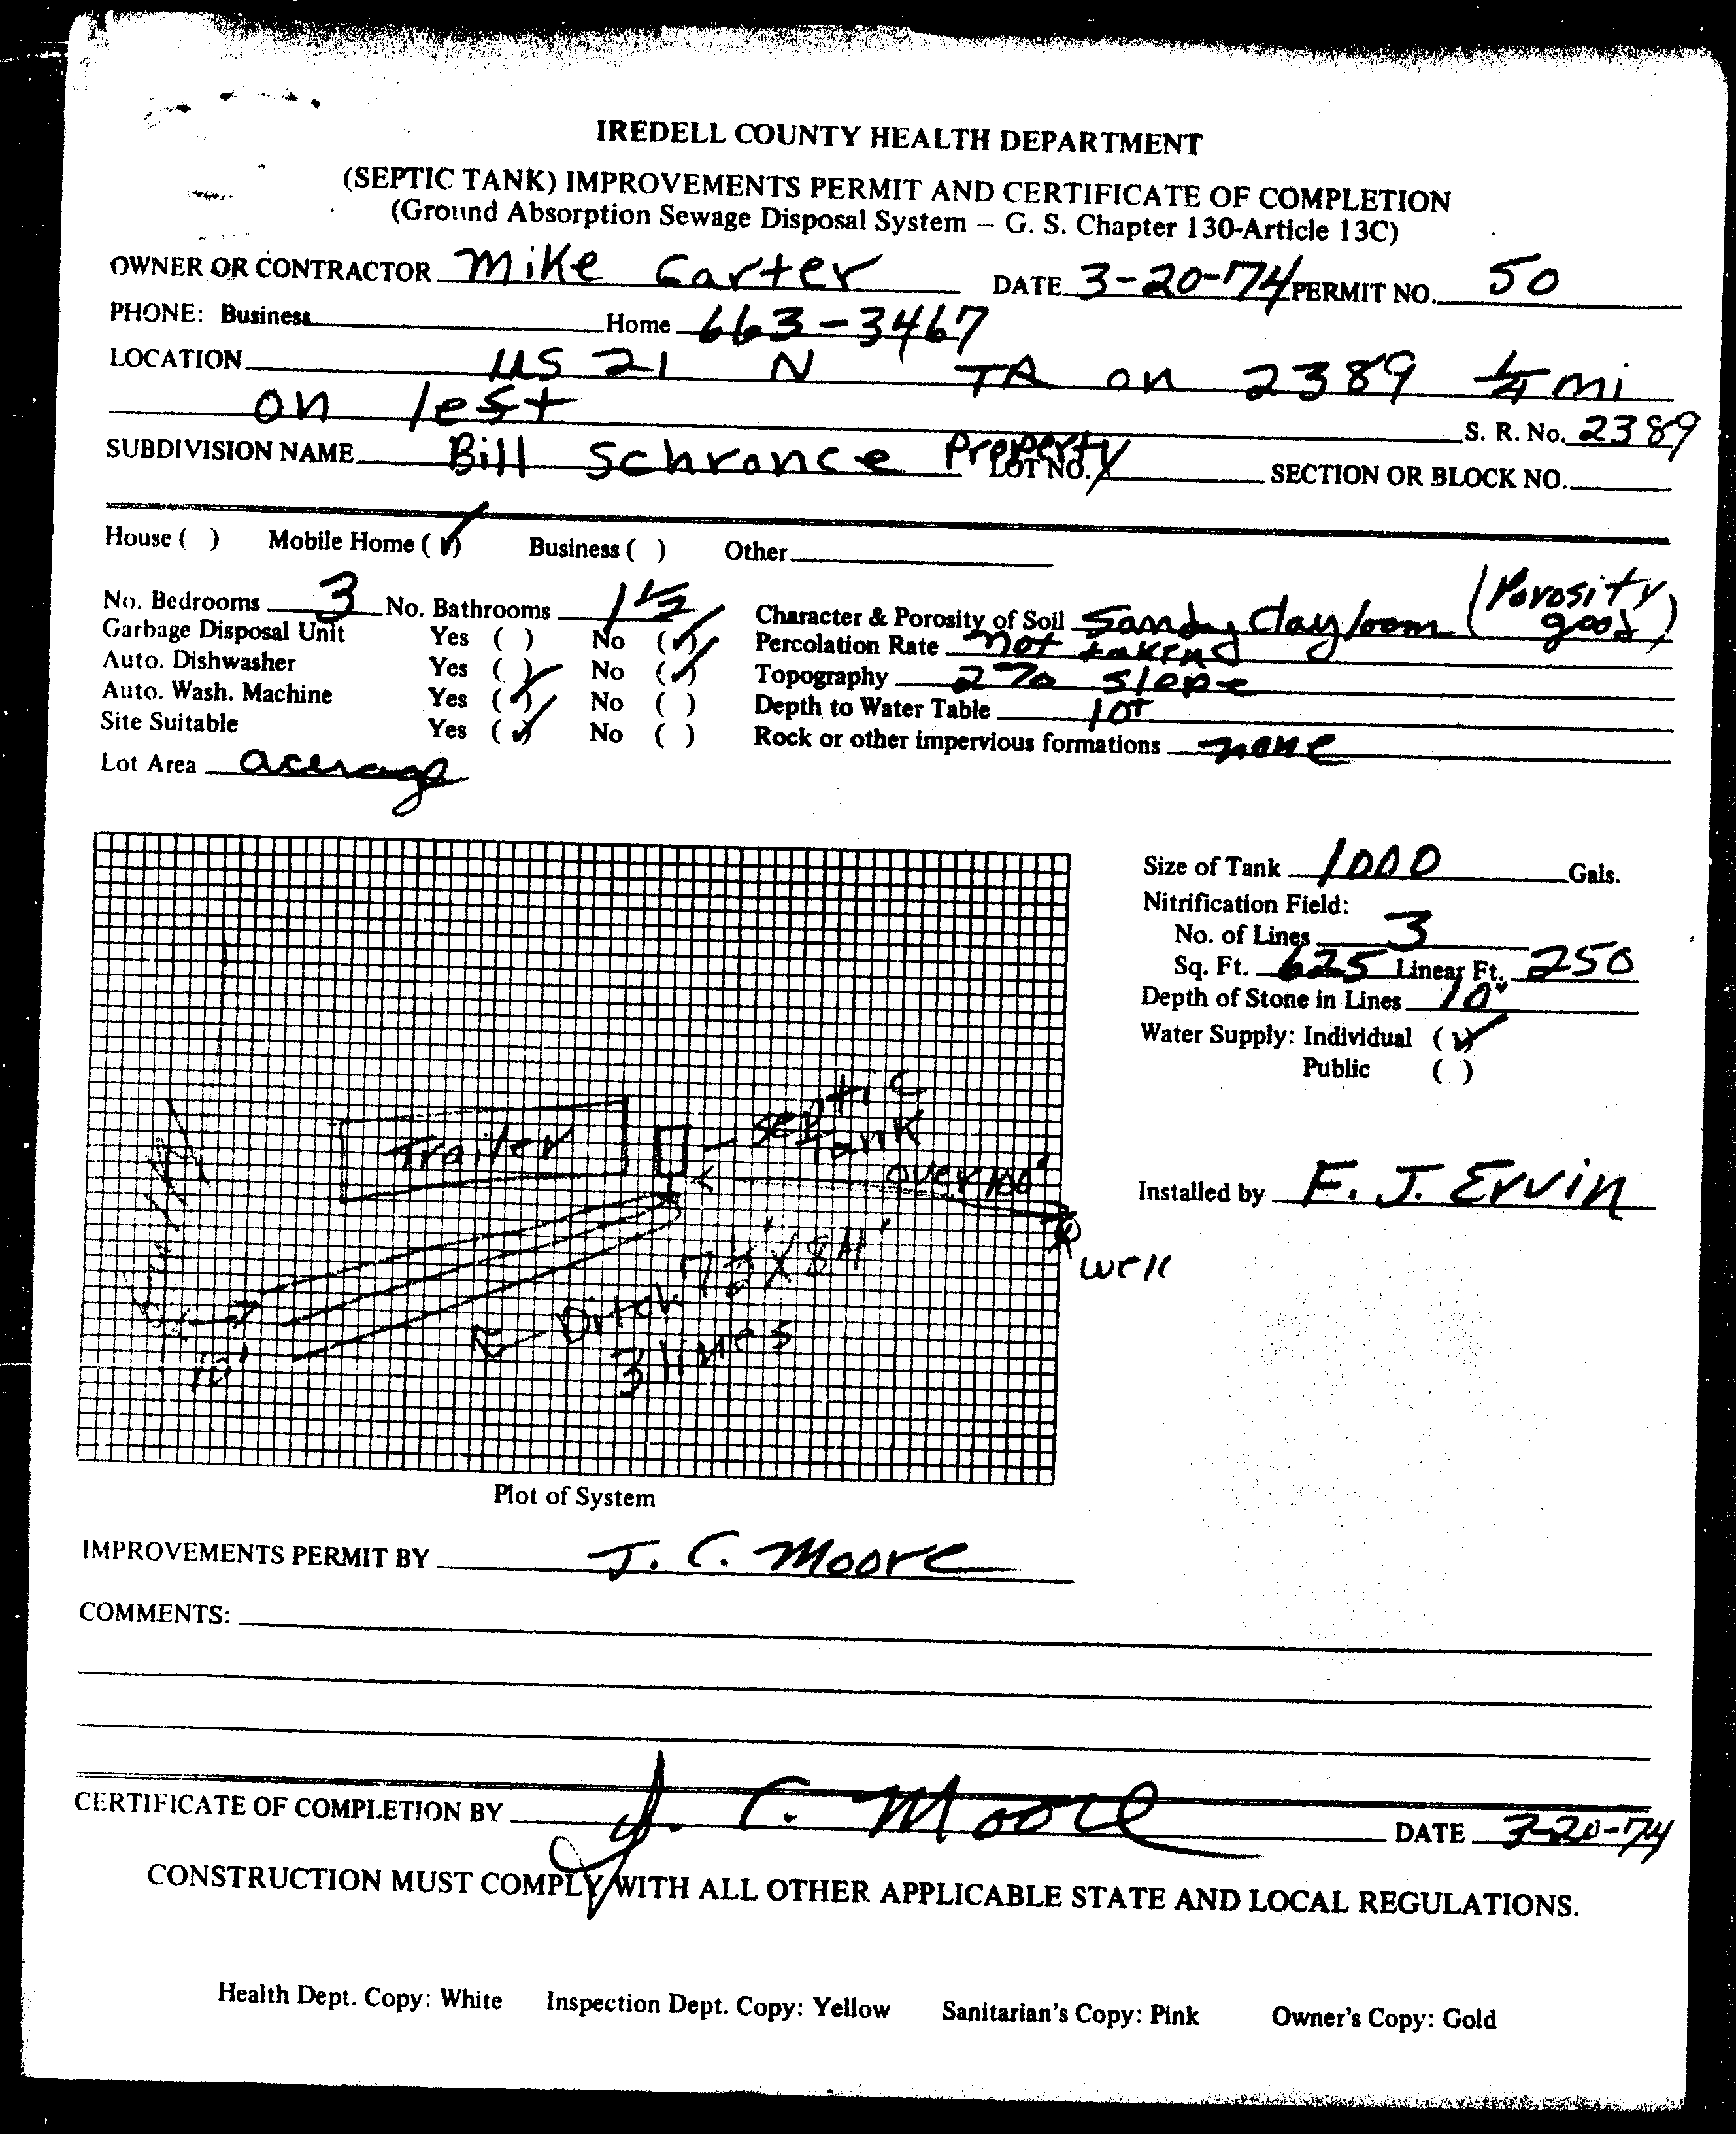 IREDELL COUNTY HEALTH DEPARTMENT
(SEPTIC TANK) IMPROVEMENTS PERMIT AND CERTIFICATE OF COMPLETION
(Ground Absorption Sewage Disposal System – G. S. Chapter 130-Article 13C)
OWNER OR CONTRACTOR Mike Carter DATE 3-20-74 PERMIT NO. 50
PHONE: Business Home 663-3467
LOCATION US 21 N TR on 2389 1/4 mi
on left S. R. No. 2389
SUBDIVISION NAME Bill Schronce Property LOT NO. SECTION OR BLOCK NO.
House ( ) Mobile Home (✓) Business ( ) Other
No. Bedrooms 3 No. Bathrooms 1 1/2 Character & Porosity of Soil Sandy Clay loom (Porosity good)
Garbage Disposal Unit Yes ( ) No (✓) Percolation Rate not taken
Auto. Dishwasher Yes ( ) No (✓) Topography 2% slope
Auto. Wash. Machine Yes (✓) No ( ) Depth to Water Table 10+
Site Suitable Yes (✓) No ( ) Rock or other impervious formations none
Lot Area acerage
Size of Tank 1000 Gals.
Nitrification Field:
No. of Lines 3
Sq. Ft. 625 Linear Ft. 250
Depth of Stone in Lines 10"
Water Supply: Individual (✓)
Public ( )
Installed by F. J. Ervin
Trailer
septic
Tank
over 100'
well
Ditch 7 1/2' X 84'
3 lines
10'
Plot of System
IMPROVEMENTS PERMIT BY J. C. Moore
COMMENTS:
CERTIFICATE OF COMPLETION BY J. C. Moore DATE 3-20-74
CONSTRUCTION MUST COMPLY WITH ALL OTHER APPLICABLE STATE AND LOCAL REGULATIONS.
Health Dept. Copy: White Inspection Dept. Copy: Yellow Sanitarian's Copy: Pink Owner's Copy: Gold